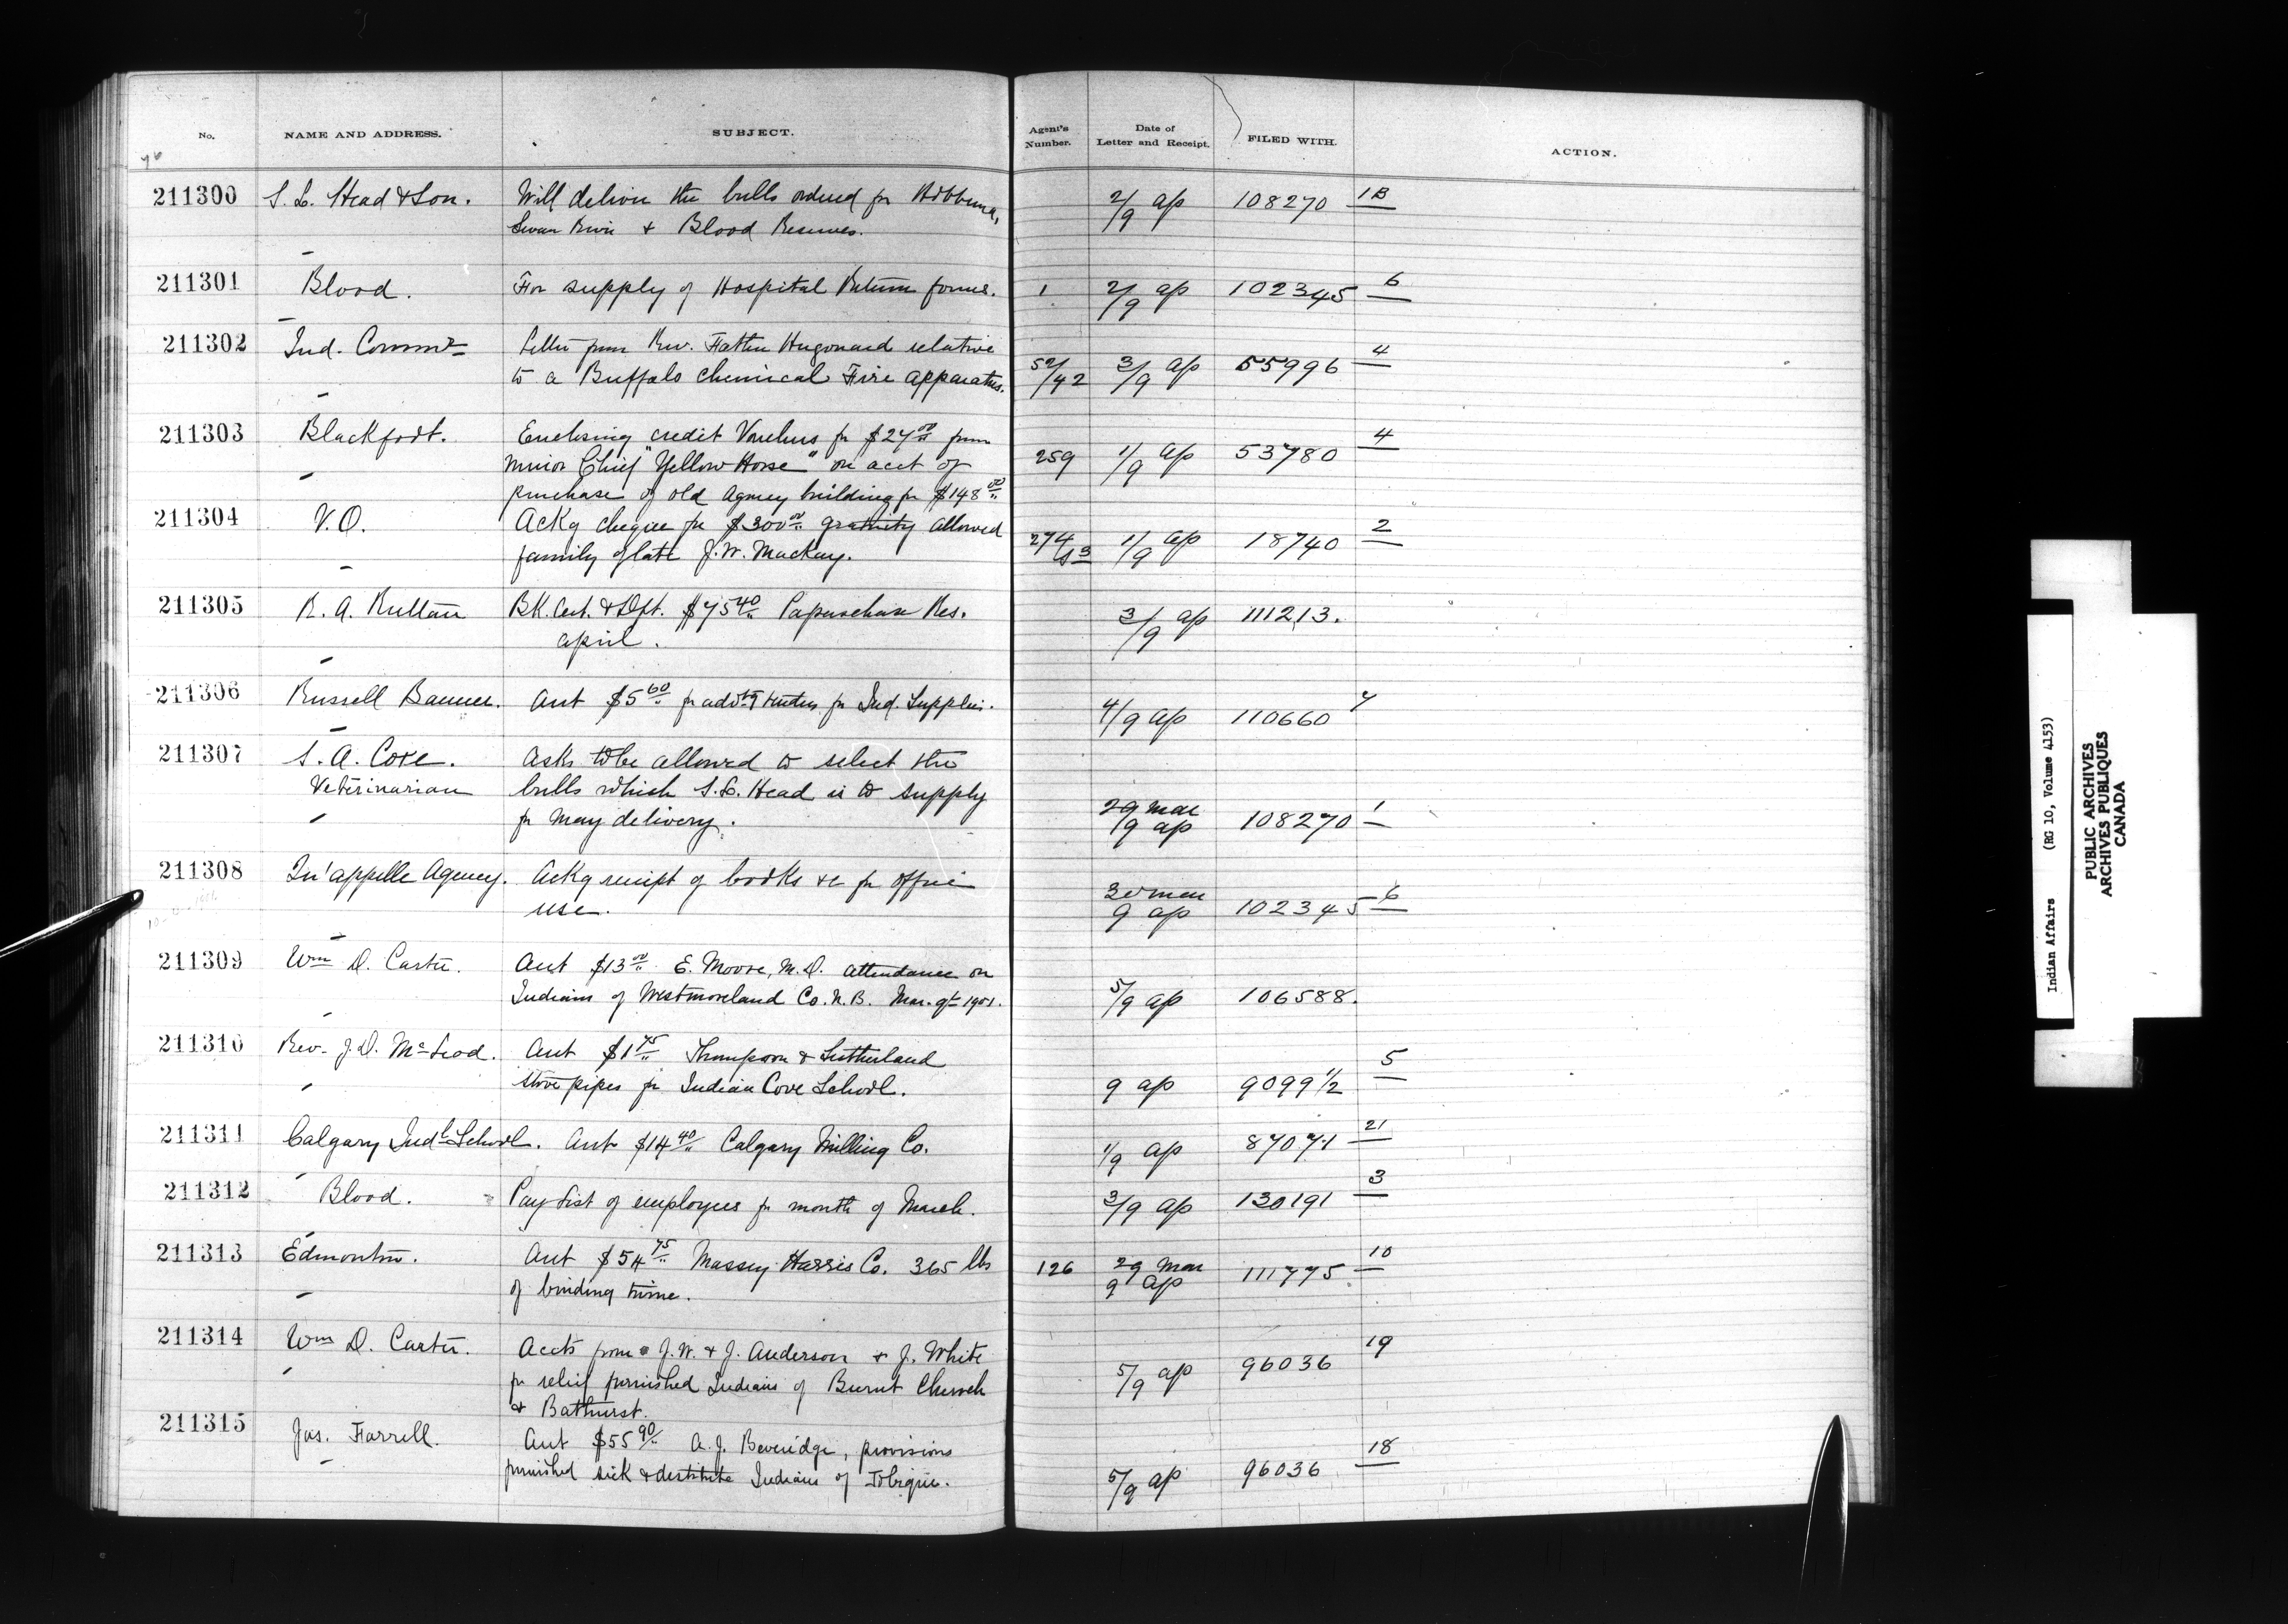 No. NAME AND ADDRESS. SUBJECT. Agent's Number. Date of Letter and Receipt. FILED WITH. ACTION.
211300 S. L. Head & Son. Will deliver the bulls ordered for Hobbema, 2/9 ap 108270 1B
Swan River & Blood Reserves.
211301 Blood. For supply of Hospital Return forms. 1 2/9 ap 102345 6
211302 Ind. Commr Letter from Rev. Father Hugonard relative
to a Buffalo Chemical Fire apparatus. 52/42 3/9 ap 55996 4
211303 Blackfoot. Enclosing credit Vouchers for $24.00 from
Minor Chief "Yellow Horse" on acct of 259 1/9 ap 53780 4
purchase of old Agency building for $148.00
211304 V.O. Ackg cheque for $300.00 gratuity allowed
family of late J. W. Mackay. 274/ 1/9 ap 18740 2
211305 R. A. Ruttan BK. Cert. & Dft. $75.40 Papaschase Res. 3/9 ap 111213.
april.
211306 Russell Banner. Acct $5.60 for advtg tenders for Ind. Supplies. 4/9 ap 110660 7
211307 S. A. Coxe. Asks to be allowed to select the
Veterinarian bulls which S. L. Head is to supply
for May delivery. 29 mar/9 ap 108270 1
211308 Qu'appelle Agency. Ackg receipt of books &c for office
use. 30 mar 9 ap 102345 6
211309 Wm D. Carter. Acct $13.00 E. Moore, M.D. attendance on
Indians of Westmoreland Co. N.B. Mar. qt 1901. 5/9 ap 106588.
211310 Rev. J. D. McLeod. Acct $1.75 Thompson & Sutherland
stove pipes for Indian Cove School. 9 ap 9099 1/2 5
211311 Calgary Indl School. Acct $14.40 Calgary Milling Co. 1/9 ap 87071 21
211312 Blood. Pay List of employees for month of March. 3/9 ap 130191 3
211313 Edmonton. Acct $54.75 Massey Harris Co. 365 lbs 126 29 mar 9 ap 111775 10
of binding twine.
211314 Wm D. Carter. Accts from J. W. & J. Anderson & J. White
for relief furnished Indians of Burnt Church 5/9 ap 96036 19
& Bathurst.
211315 Jas. Farrell. Acct $55.90 A. J. Beveridge, provisions
furnished sick & destitute Indians of Tobique. 5/9 ap 96036 18
Indian Affairs (RG 10, Volume 4153)
PUBLIC ARCHIVES
ARCHIVES PUBLIQUES
CANADA